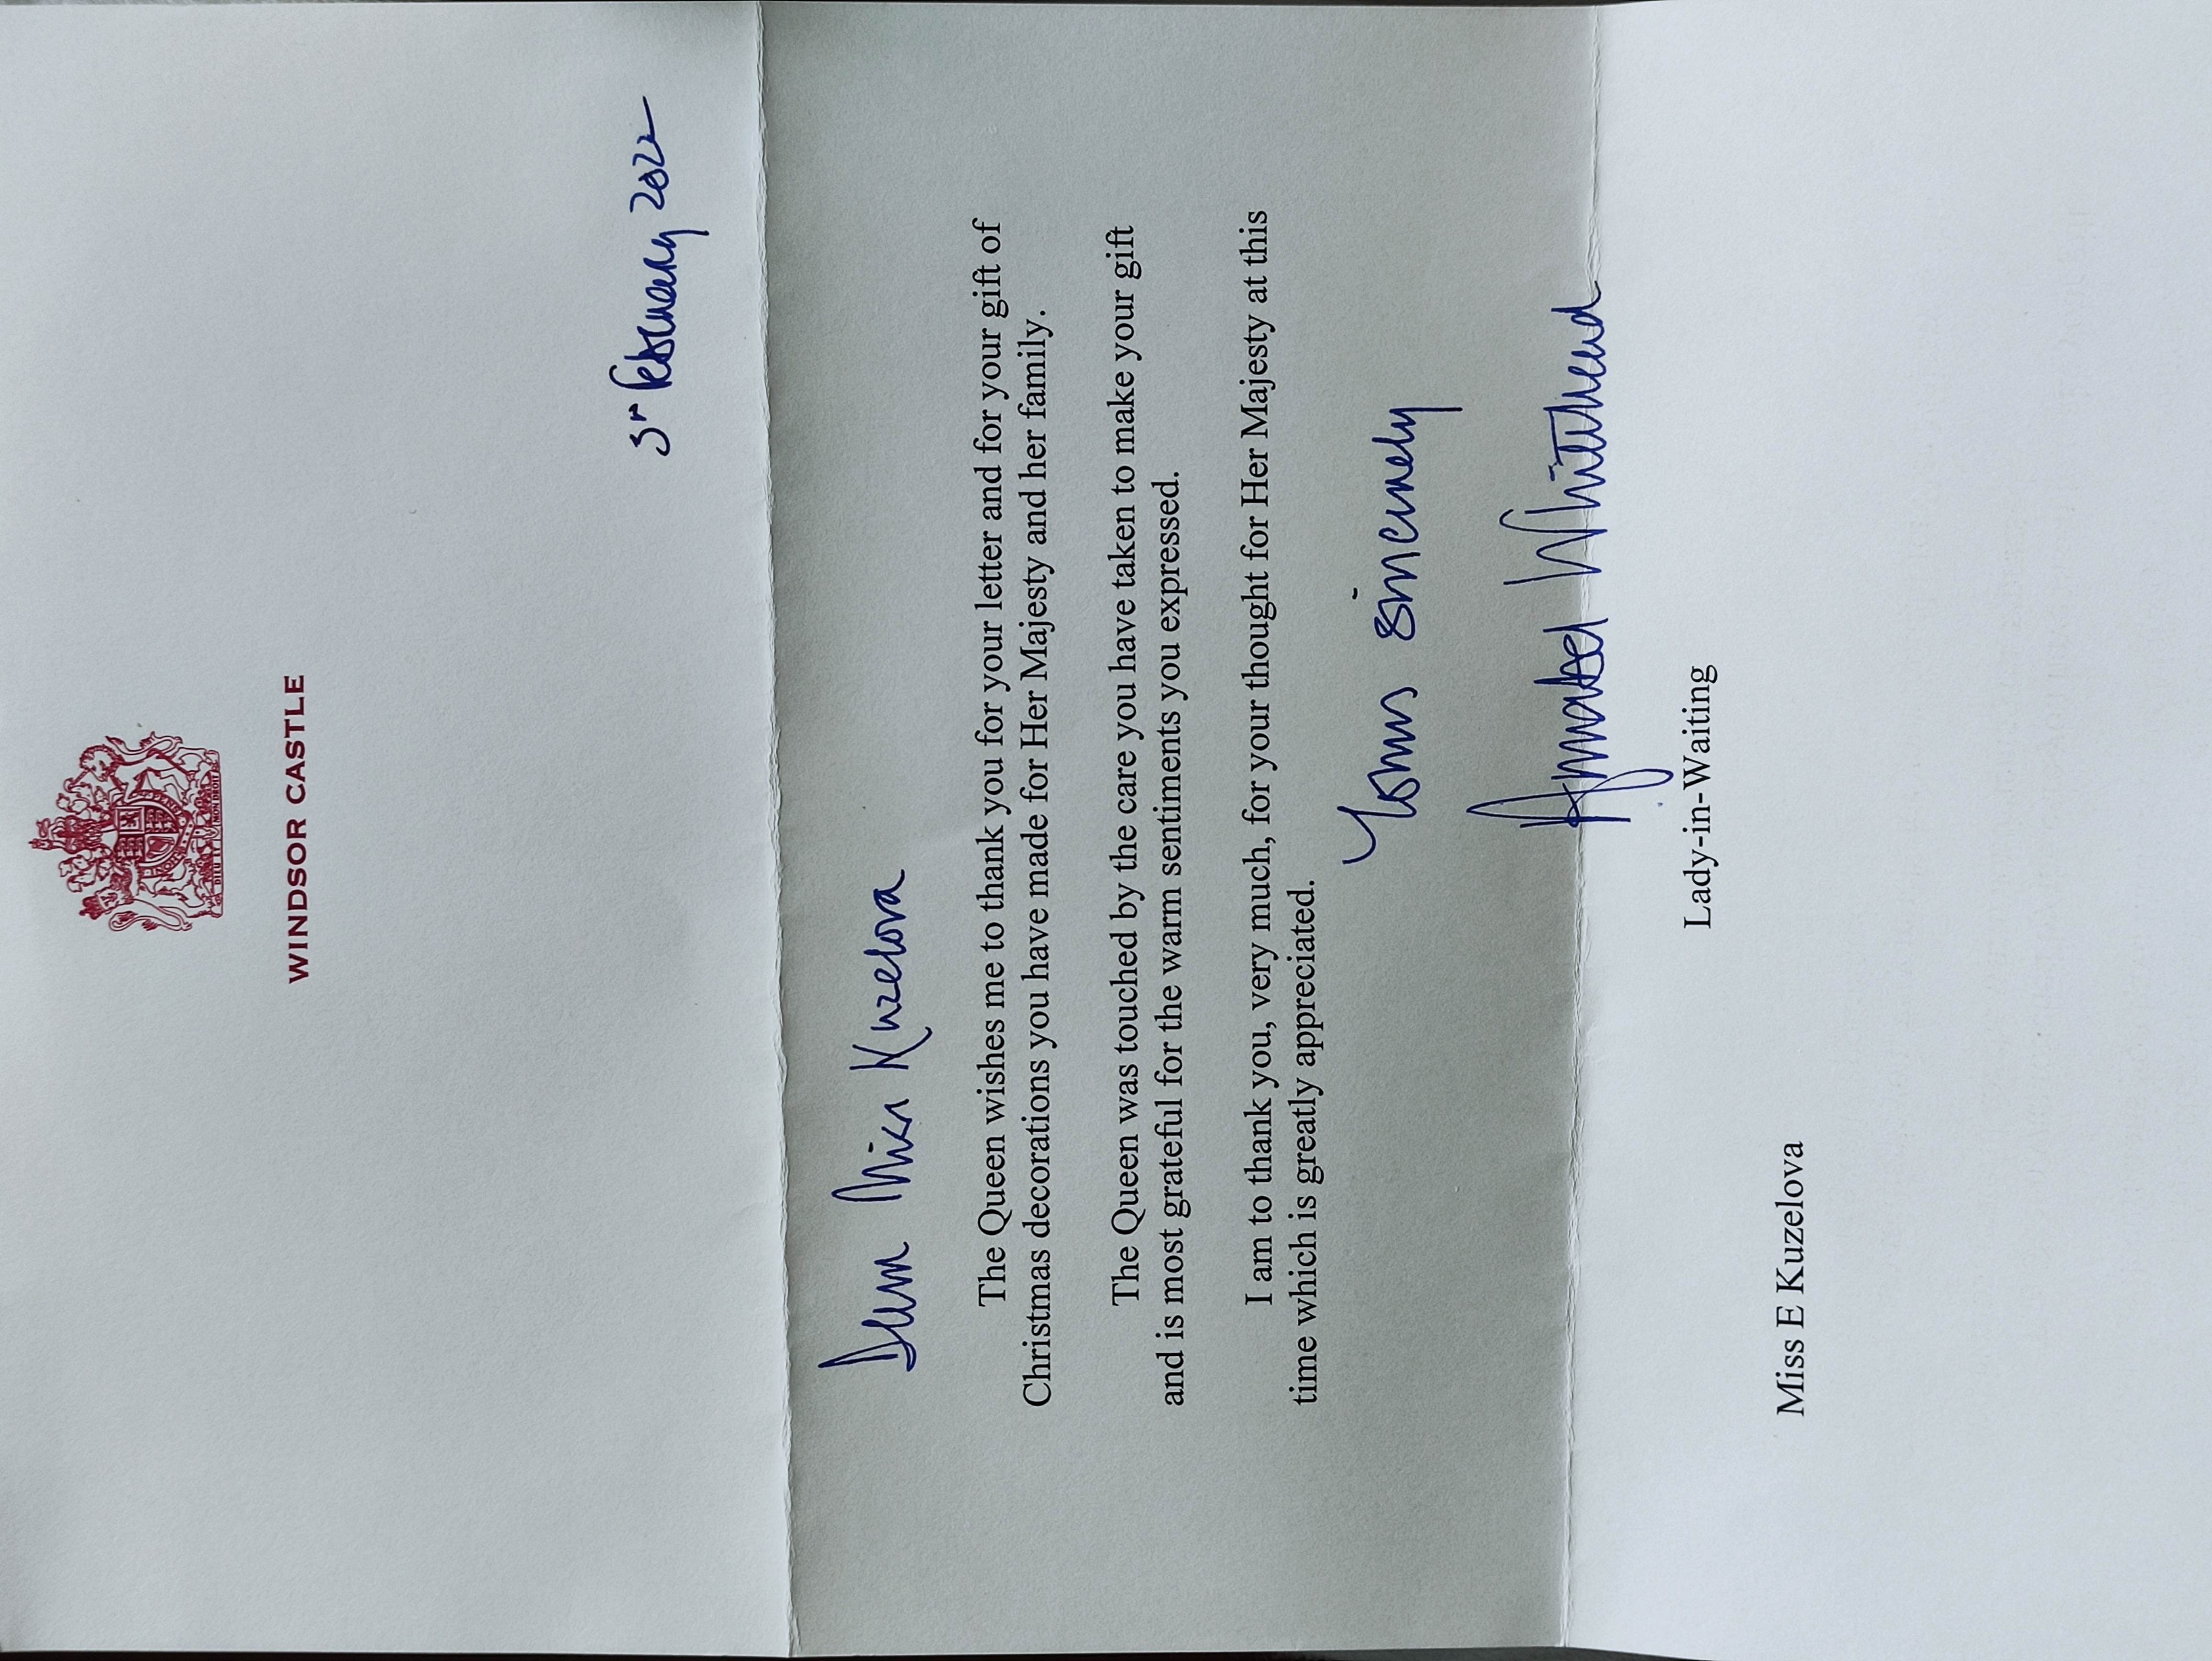 WINDSOR CASTLE
3rd February 2022
Dear Miss Kuzelova
The Queen wishes me to thank you for your letter and for your gift of
Christmas decorations you have made for Her Majesty and her family.
The Queen was touched by the care you have taken to make your gift
and is most grateful for the warm sentiments you expressed.
I am to thank you, very much, for your thought for Her Majesty at this
time which is greatly appreciated.
Yours sincerely
Annabel Whitehead
Lady-in-Waiting
Miss E Kuzelova